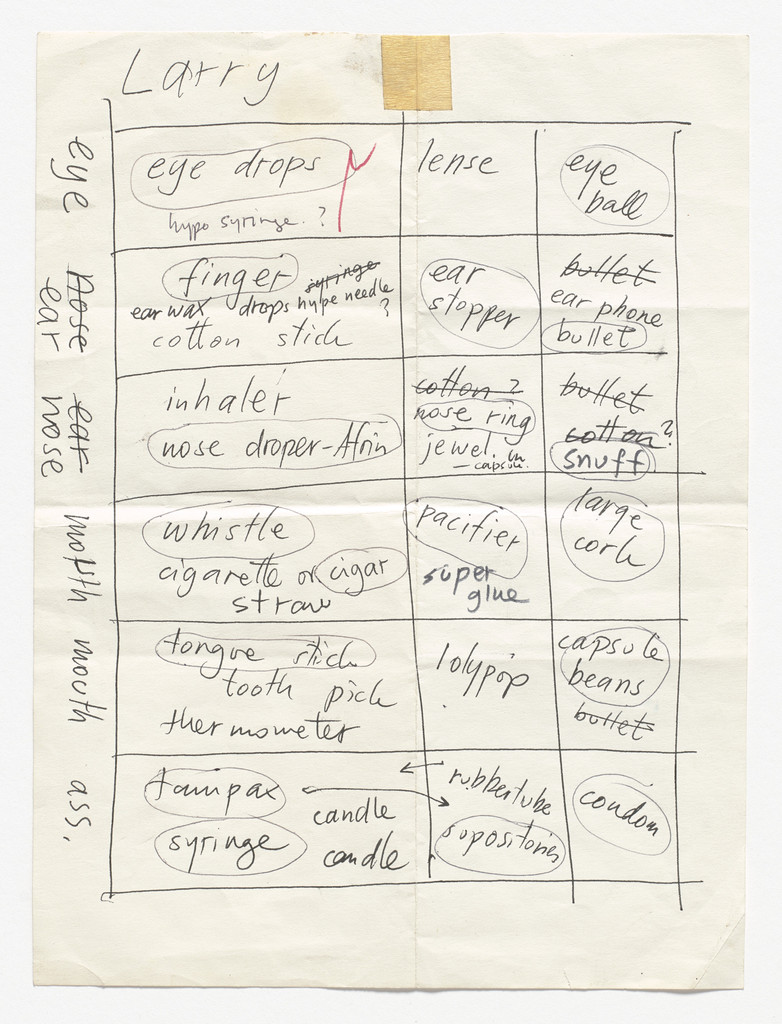 Larry
eye
eye drops
hypo syringe. ?
lense
eye
ball
nose
ear
finger
syringe
ear wax drops hype needle
?
cotton stick
ear
stopper
bullet
ear phone
bullet
ear
nose
inhaler
nose droper-Afrin
cotton ?
nose ring
jewel. in
— capsule.
bullet
cotton ?
snuff
mouth
whistle
cigarette or cigar
straw
pacifier
super
glue
large
cork
mouth
tongue stick
tooth pick
thermometer
lolypop
capsule
beans
bullet
ass,
tampax
candle
syringe
candle
rubbertube
supositories
condom